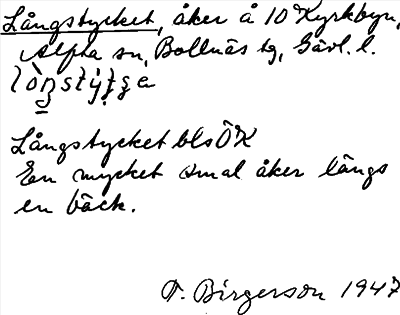 Långstycket, åker å 10 Kyrkbyn,
Alfta sn, Bollnäs tg, Gävl. l.
Långstycket bls ÖK
En mycket smal åker längs
en bäck.
F. Birgerson 1947